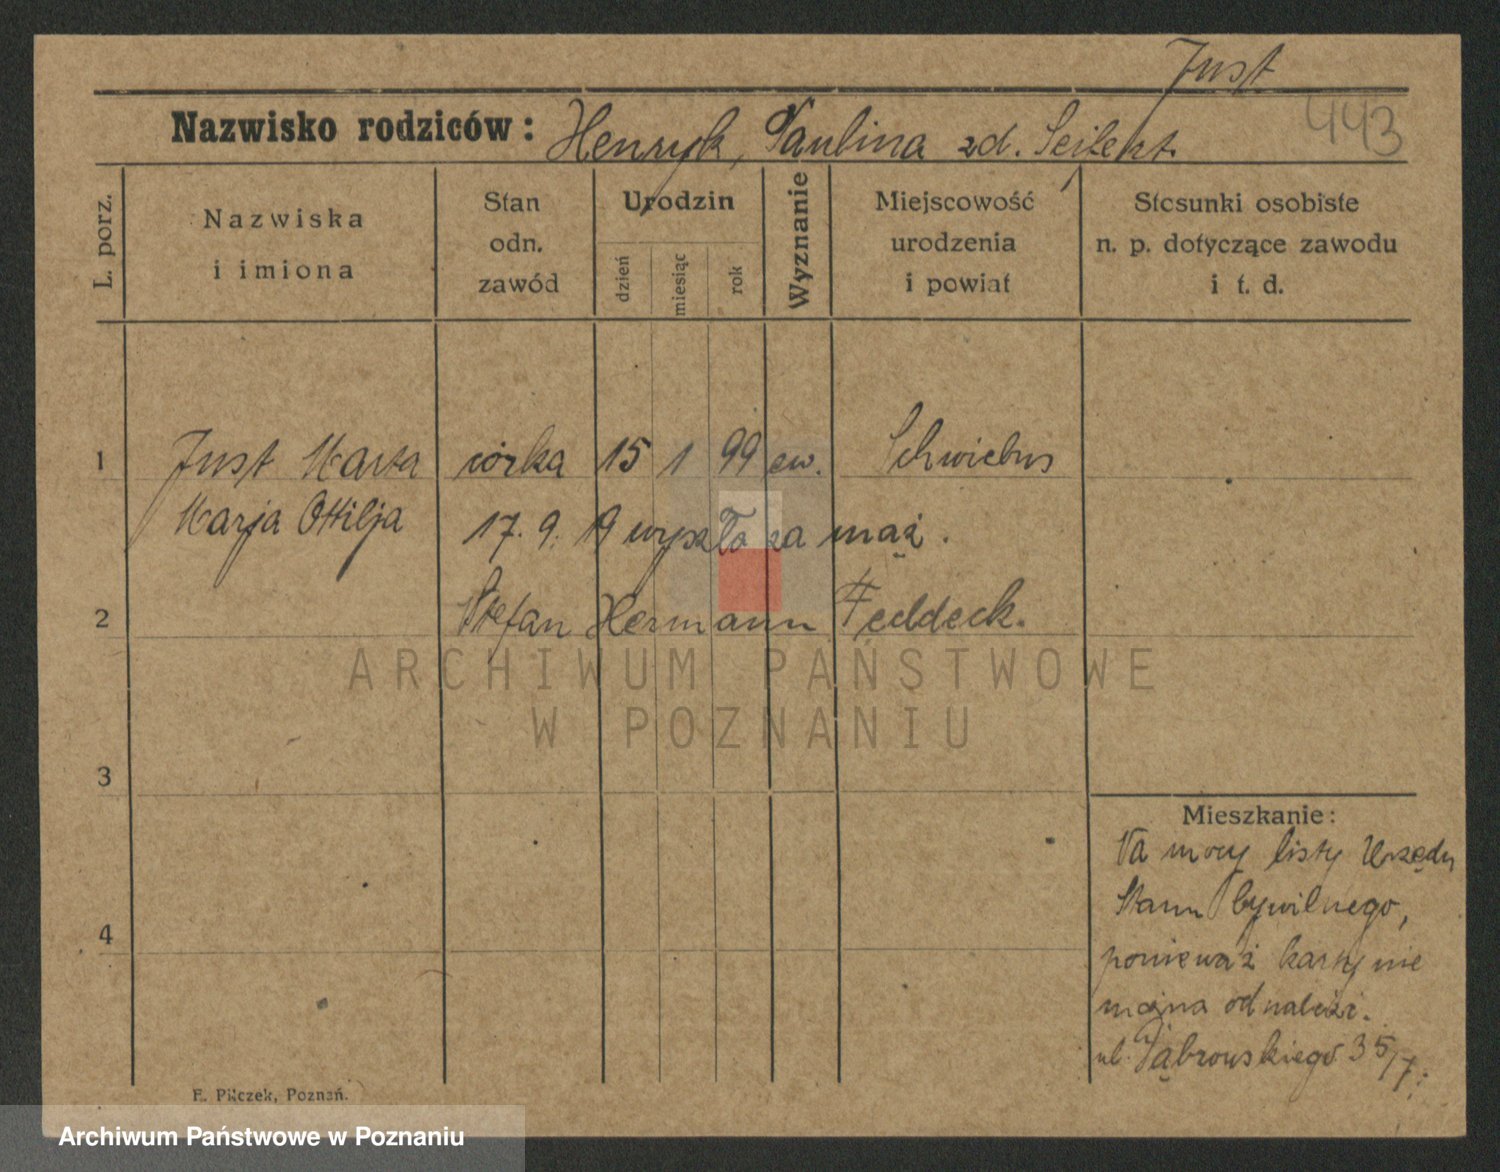 Just
443
Nazwisko rodziców: Henryk, Paulina zd. Seifert.
L. porz.
Nazwiska i imiona
Stan odn. zawód
Urodzin
dzień
miesiąc
rok
Wyznanie
Miejscowość urodzenia i powiat
Stosunki osobiste n. p. dotyczące zawodu i t. d.
1 Just Marta córka 15 1 99 ew. Schwiebus
Marja Ottilja 17. 9. 19 wyszła za mąż.
2 Stefan Hermann Feddeck.
3
4
Mieszkanie:
Na mocy listy Urzędu
Stanu Cywilnego,
ponieważ karty nie
można odnaleźć.
ul. Dąbrowskiego 35/7.
E. Pilczek, Poznań.
ARCHIWUM PAŃSTWOWE
W POZNANIU
Archiwum Państwowe w Poznaniu